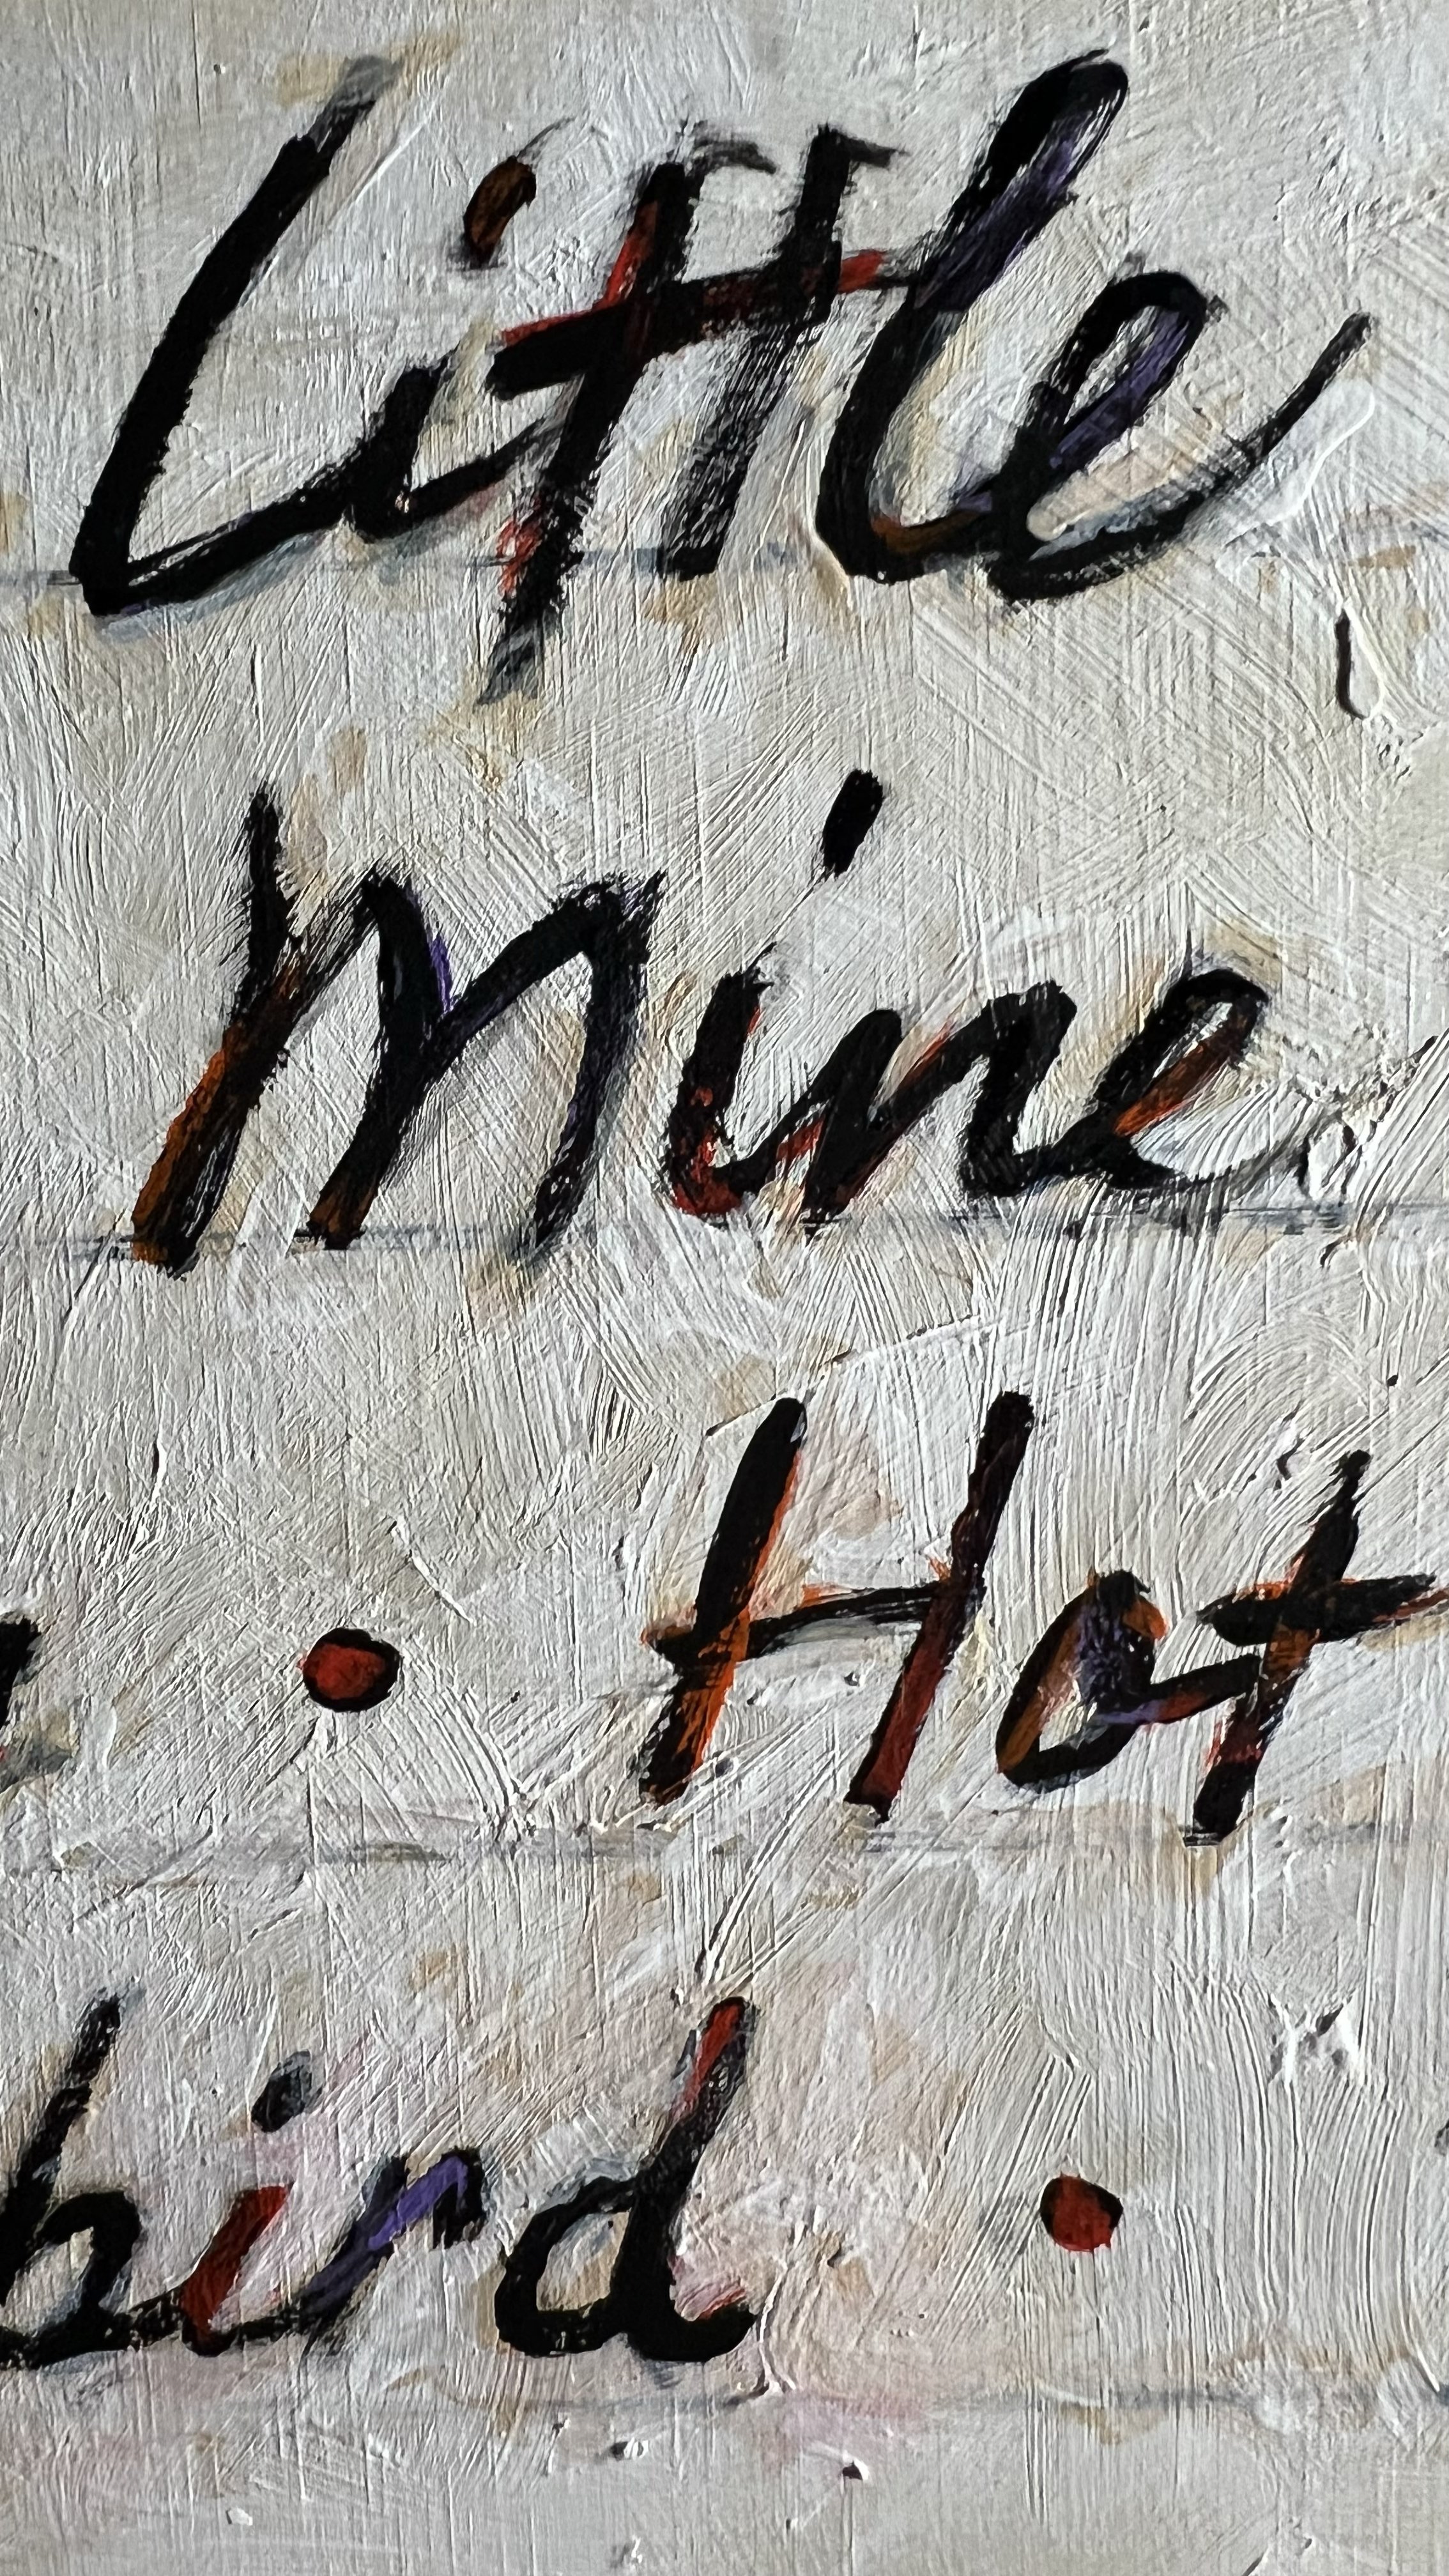 Little
Mine
• Hot
bird •